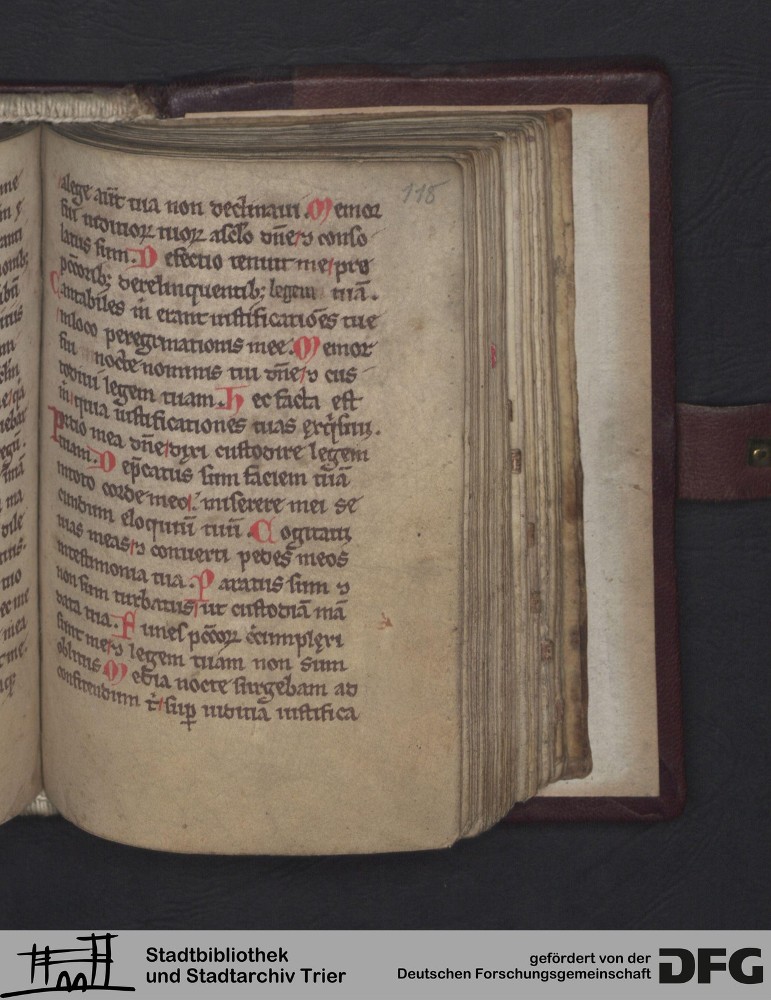 118
alege aūt tua non declinaui. Memor
fui iudiciorꝝ tuorꝝ aſclo dn̄e ⁊ conſo
latus ſum. Defectio tenuit me pro
pc̄c̄oribꝫ derelinquentibꝫ legem tuā.
Cantabiles m̄ erant iuſtificatiōes tue
inloco peregrinationis mee. Memor
fui nocte nominis tui dn̄e ⁊ cus
todiui legem tuam. Hec facta eſt
m̄ quia iuſtificationes tuas exq̄ſiui.
Portio mea dn̄e dixi cuſtodire legem
tuam. Dep̄catus ſum faciem tuā
intoto corde meo miſerere mei ſe
cundum eloquiū tuū. Cogitaui
uias meas ⁊ conuerti pedes meos
inteſtimonia tua. Paratus ſum ⁊
non ſum turbatus ut cuſtodiā mā
data tua. Funes pc̄c̄orꝝ c̄cumplexi
ſunt me ⁊ legem tuam non ſum
oblitus Media nocte ſurgebam ad
confitendum t̄ ſuꝑ iudicia iuſtifica
Stadtbibliothek
und Stadtarchiv Trier
gefördert von der
Deutschen Forschungsgemeinschaft
DFG